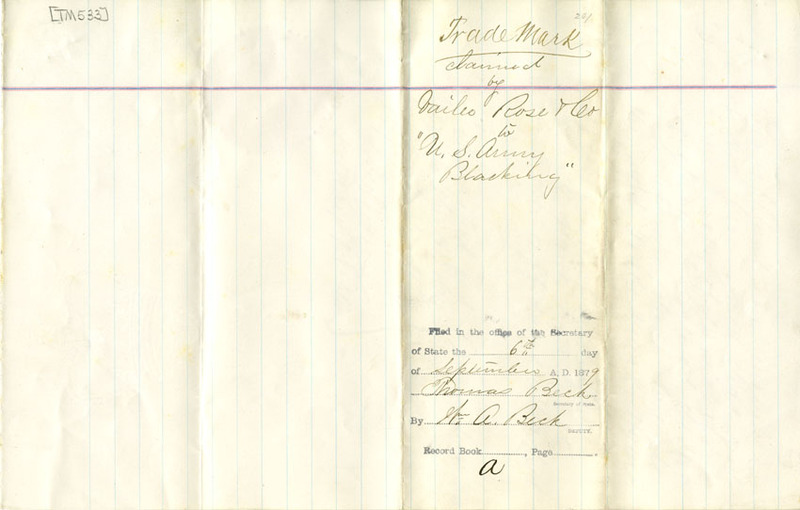 [TM533]
Trade Mark
claimed
by
Rose & Co
to
"U. S. Army
Blacking"
Filed in the office of the Secretary
of State the 6th day
of September A. D. 1879
Thomas Beck
Secretary of State.
By Wm A. Beck
DEPUTY.
Record Book , Page .
A